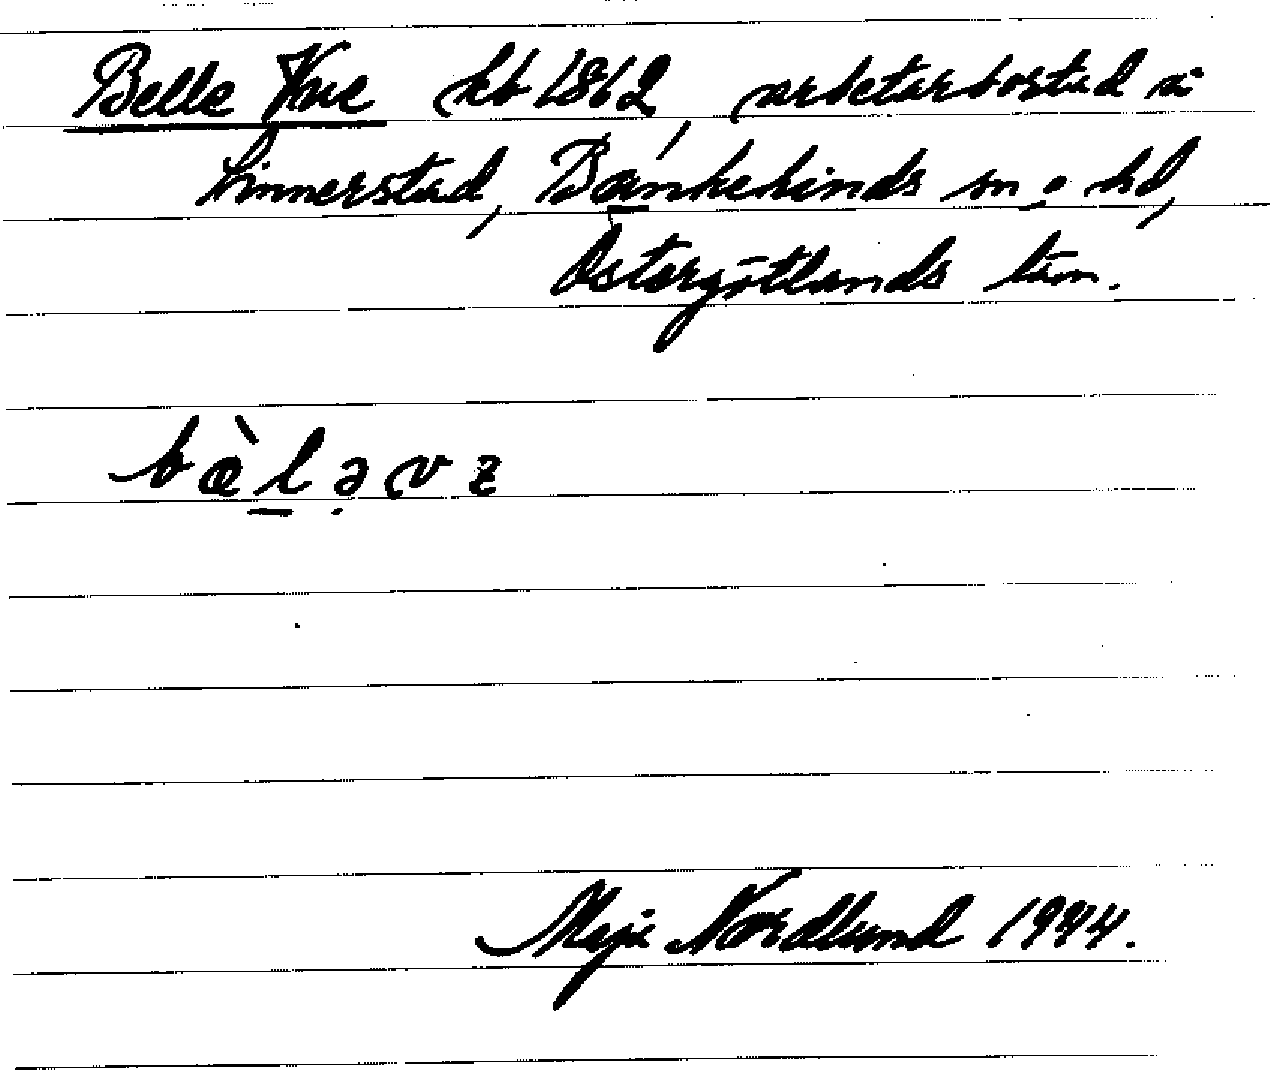 Belle Vue kb 1862, arbetarbostad å
Linnerstad, Bankekinds sn o hd,
Östergötlands län.
bæ̀l̠ə̣vz
Maja Nordlund 1944.